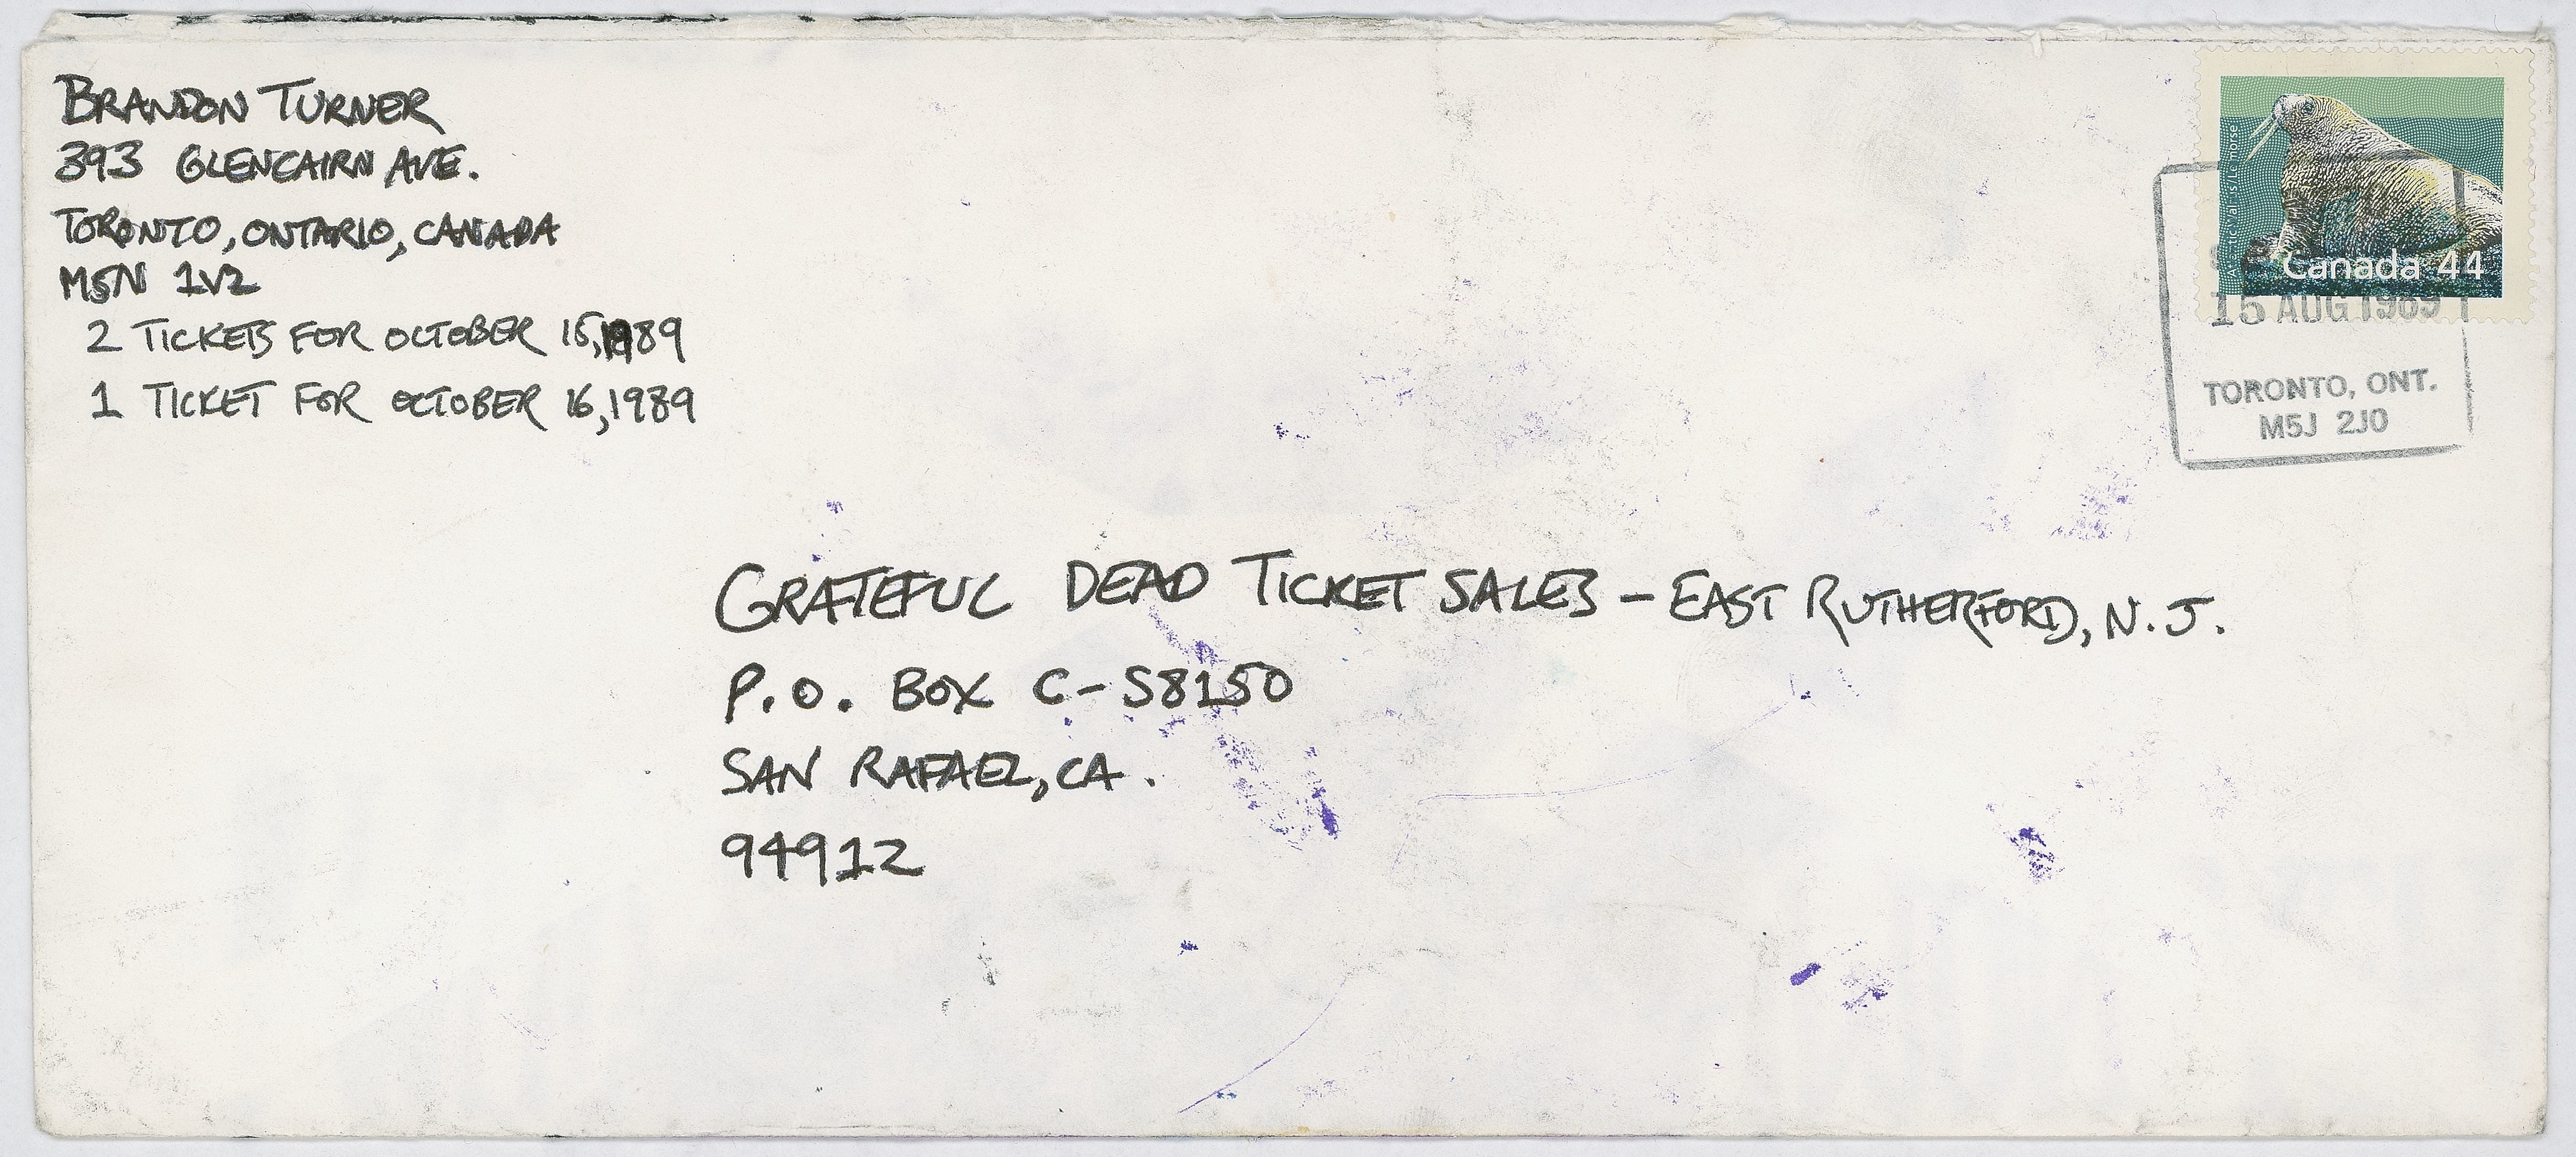 BRANDON TURNER
393 GLENCAIRN AVE.
TORONTO, ONTARIO, CANADA
M5N 1V2
2 TICKETS FOR OCTOBER 15, 1989
1 TICKET FOR OCTOBER 16, 1989
Canada 44
15 AUG 1989
TORONTO, ONT.
M5J 2J0
GRATEFUL DEAD TICKET SALES - EAST RUTHERFORD, N.J.
P.O. BOX C-S8150
SAN RAFAEL, CA.
94912